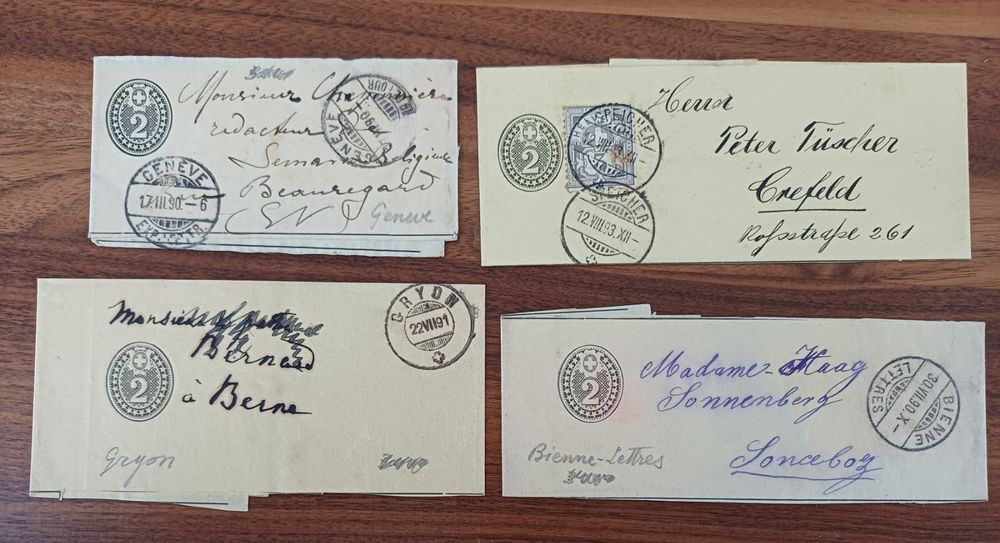 2
Monsieur
rédacteur
Beauregard
Geneve
GENÈVE
17 III 90. - 6
GENEVE
2
Herrn
Peter Tüscher
Crefeld
Roſsstraſse 261
SPEICHER
12.VIII.93.XII-
SPEICHER
12.VIII.93.XII-
2
Monsieur
Bernard
à Berne
GRYON
22 VII 91
Gryon
2
Madame Haag
Sonnenberg
Sonceboz
BIENNE
30.VII.90.X-
LETTRES
Bienne-Lettres